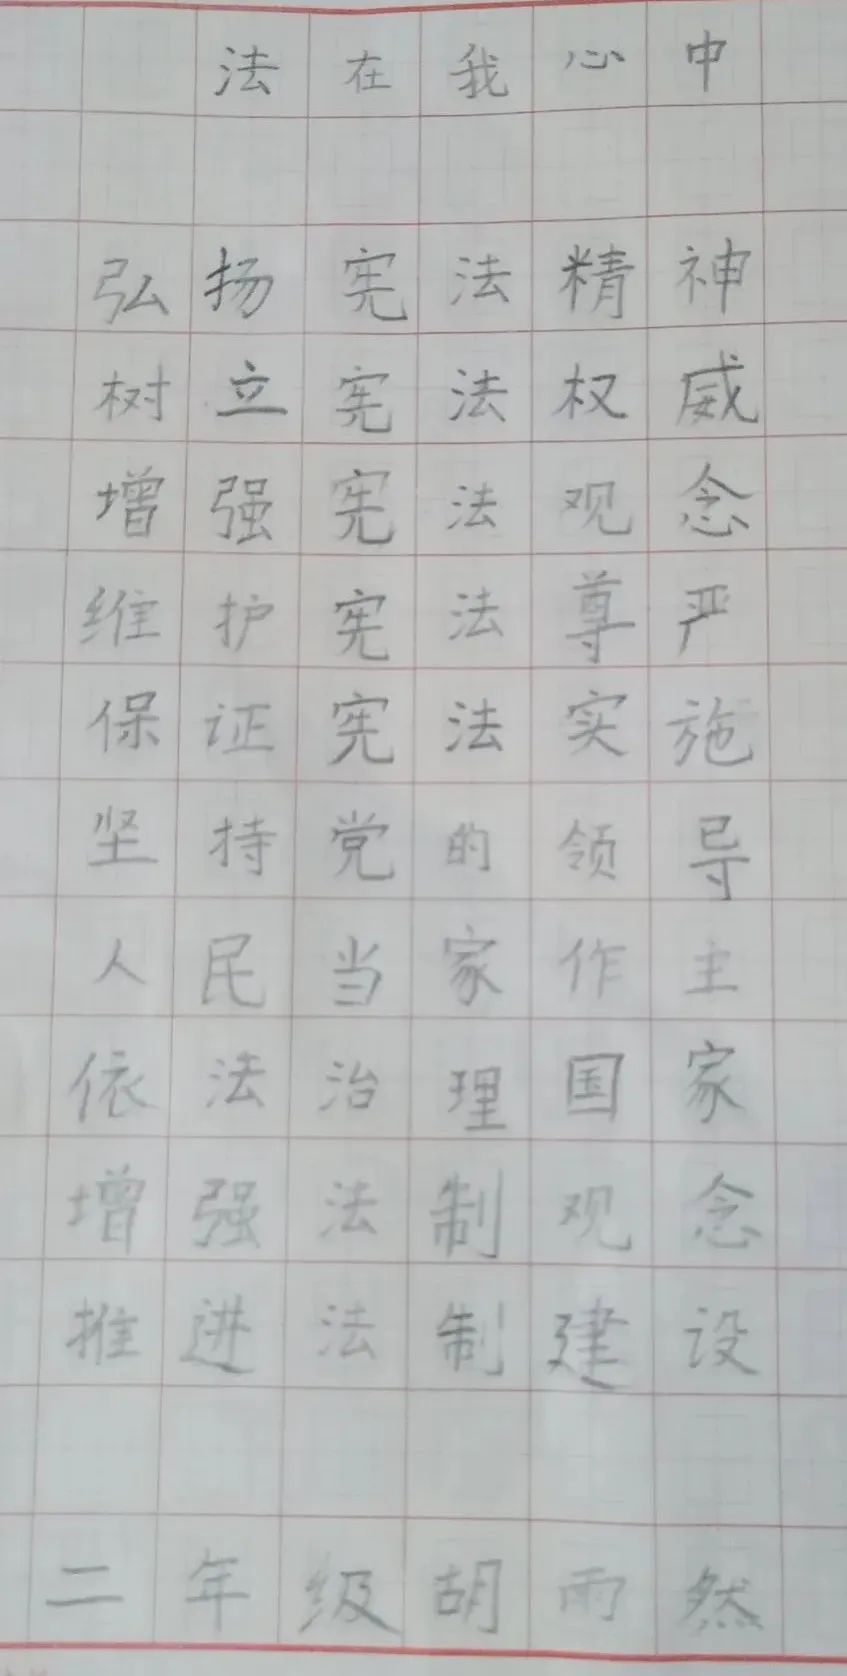 法在我心中
弘扬宪法精神
树立宪法权威
增强宪法观念
维护宪法尊严
保证宪法实施
坚持党的领导
人民当家作主
依法治理国家
增强法制观念
推进法制建设
二年级胡雨然